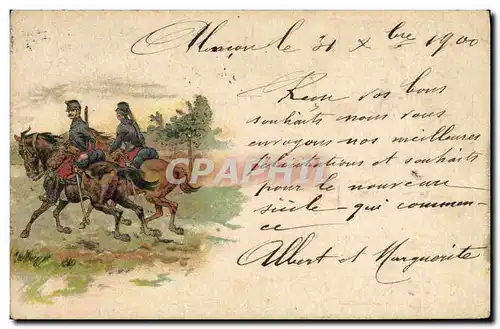 Alençon le 31 Xbre 1900
Reçu vos bons
souhaits nous vous
envoyons nos meilleures
félicitations et souhaits
pour le nouveau
siècle - qui commen-
ce
Albert et Marguerite
CPAPHIL